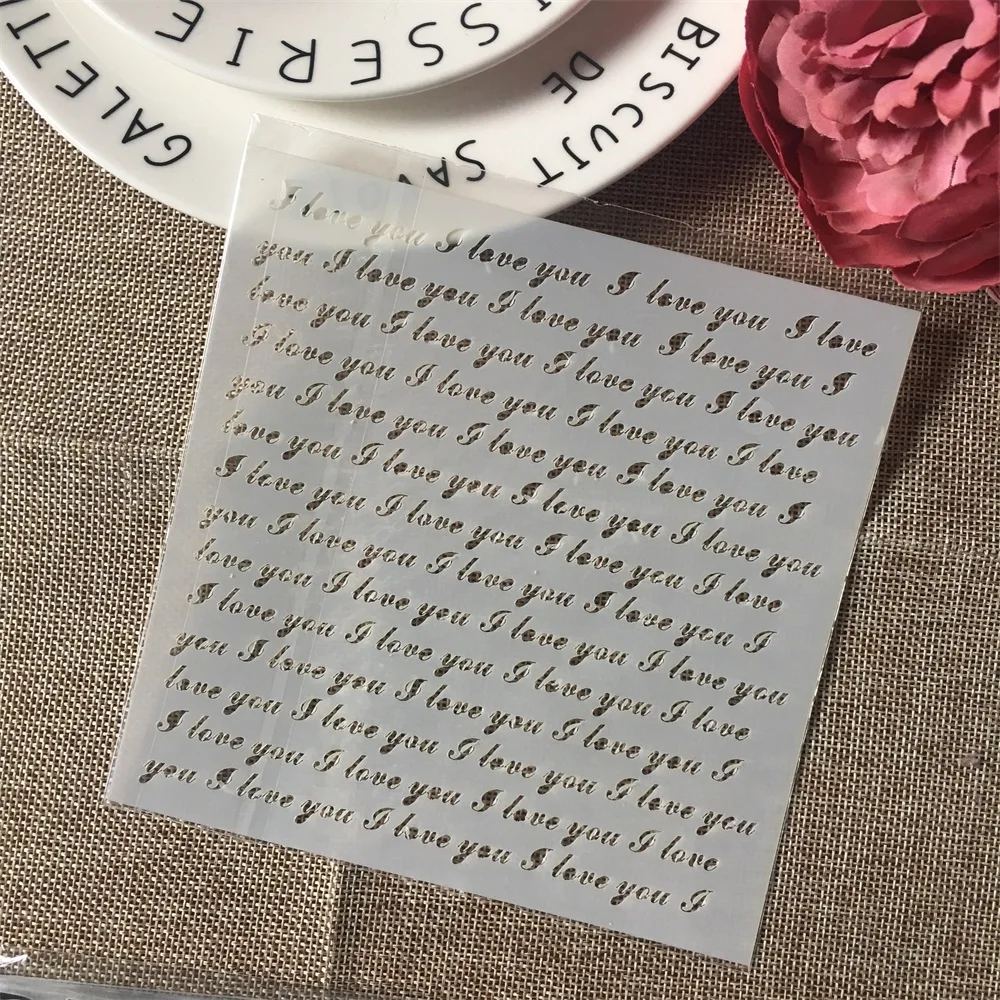 SSERIE
GALETT
BISCUIT DE SAV
I love you I love you I love you I love
you I love you I love you I love you I
love you I love you I love you I love you
I love you I love you I love you I love
you I love you I love you I love you I
love you I love you I love you I love you
I love you I love you I love you I love
you I love you I love you I love you I
love you I love you I love you I love you
I love you I love you I love you I love
you I love you I love you I love you I
love you I love you I love you I love you
I love you I love you I love you I love
you I love you I love you I love you I